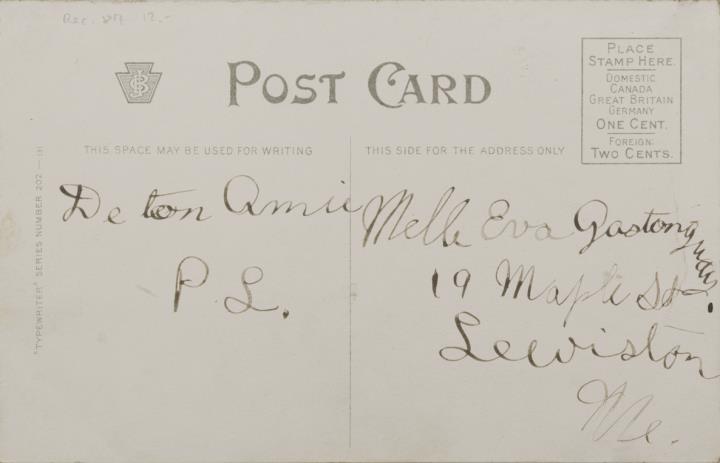 POST CARD
PLACE
STAMP HERE.
DOMESTIC
CANADA
GREAT BRITAIN
GERMANY
ONE CENT.
FOREIGN:
TWO CENTS.
THIS SPACE MAY BE USED FOR WRITING
THIS SIDE FOR THE ADDRESS ONLY
"TYPEWRITER" SERIES NUMBER 202.
De ton Amie
P. L.
Melle Eva Gastonguay
19 Maple St.
Lewiston
Me.